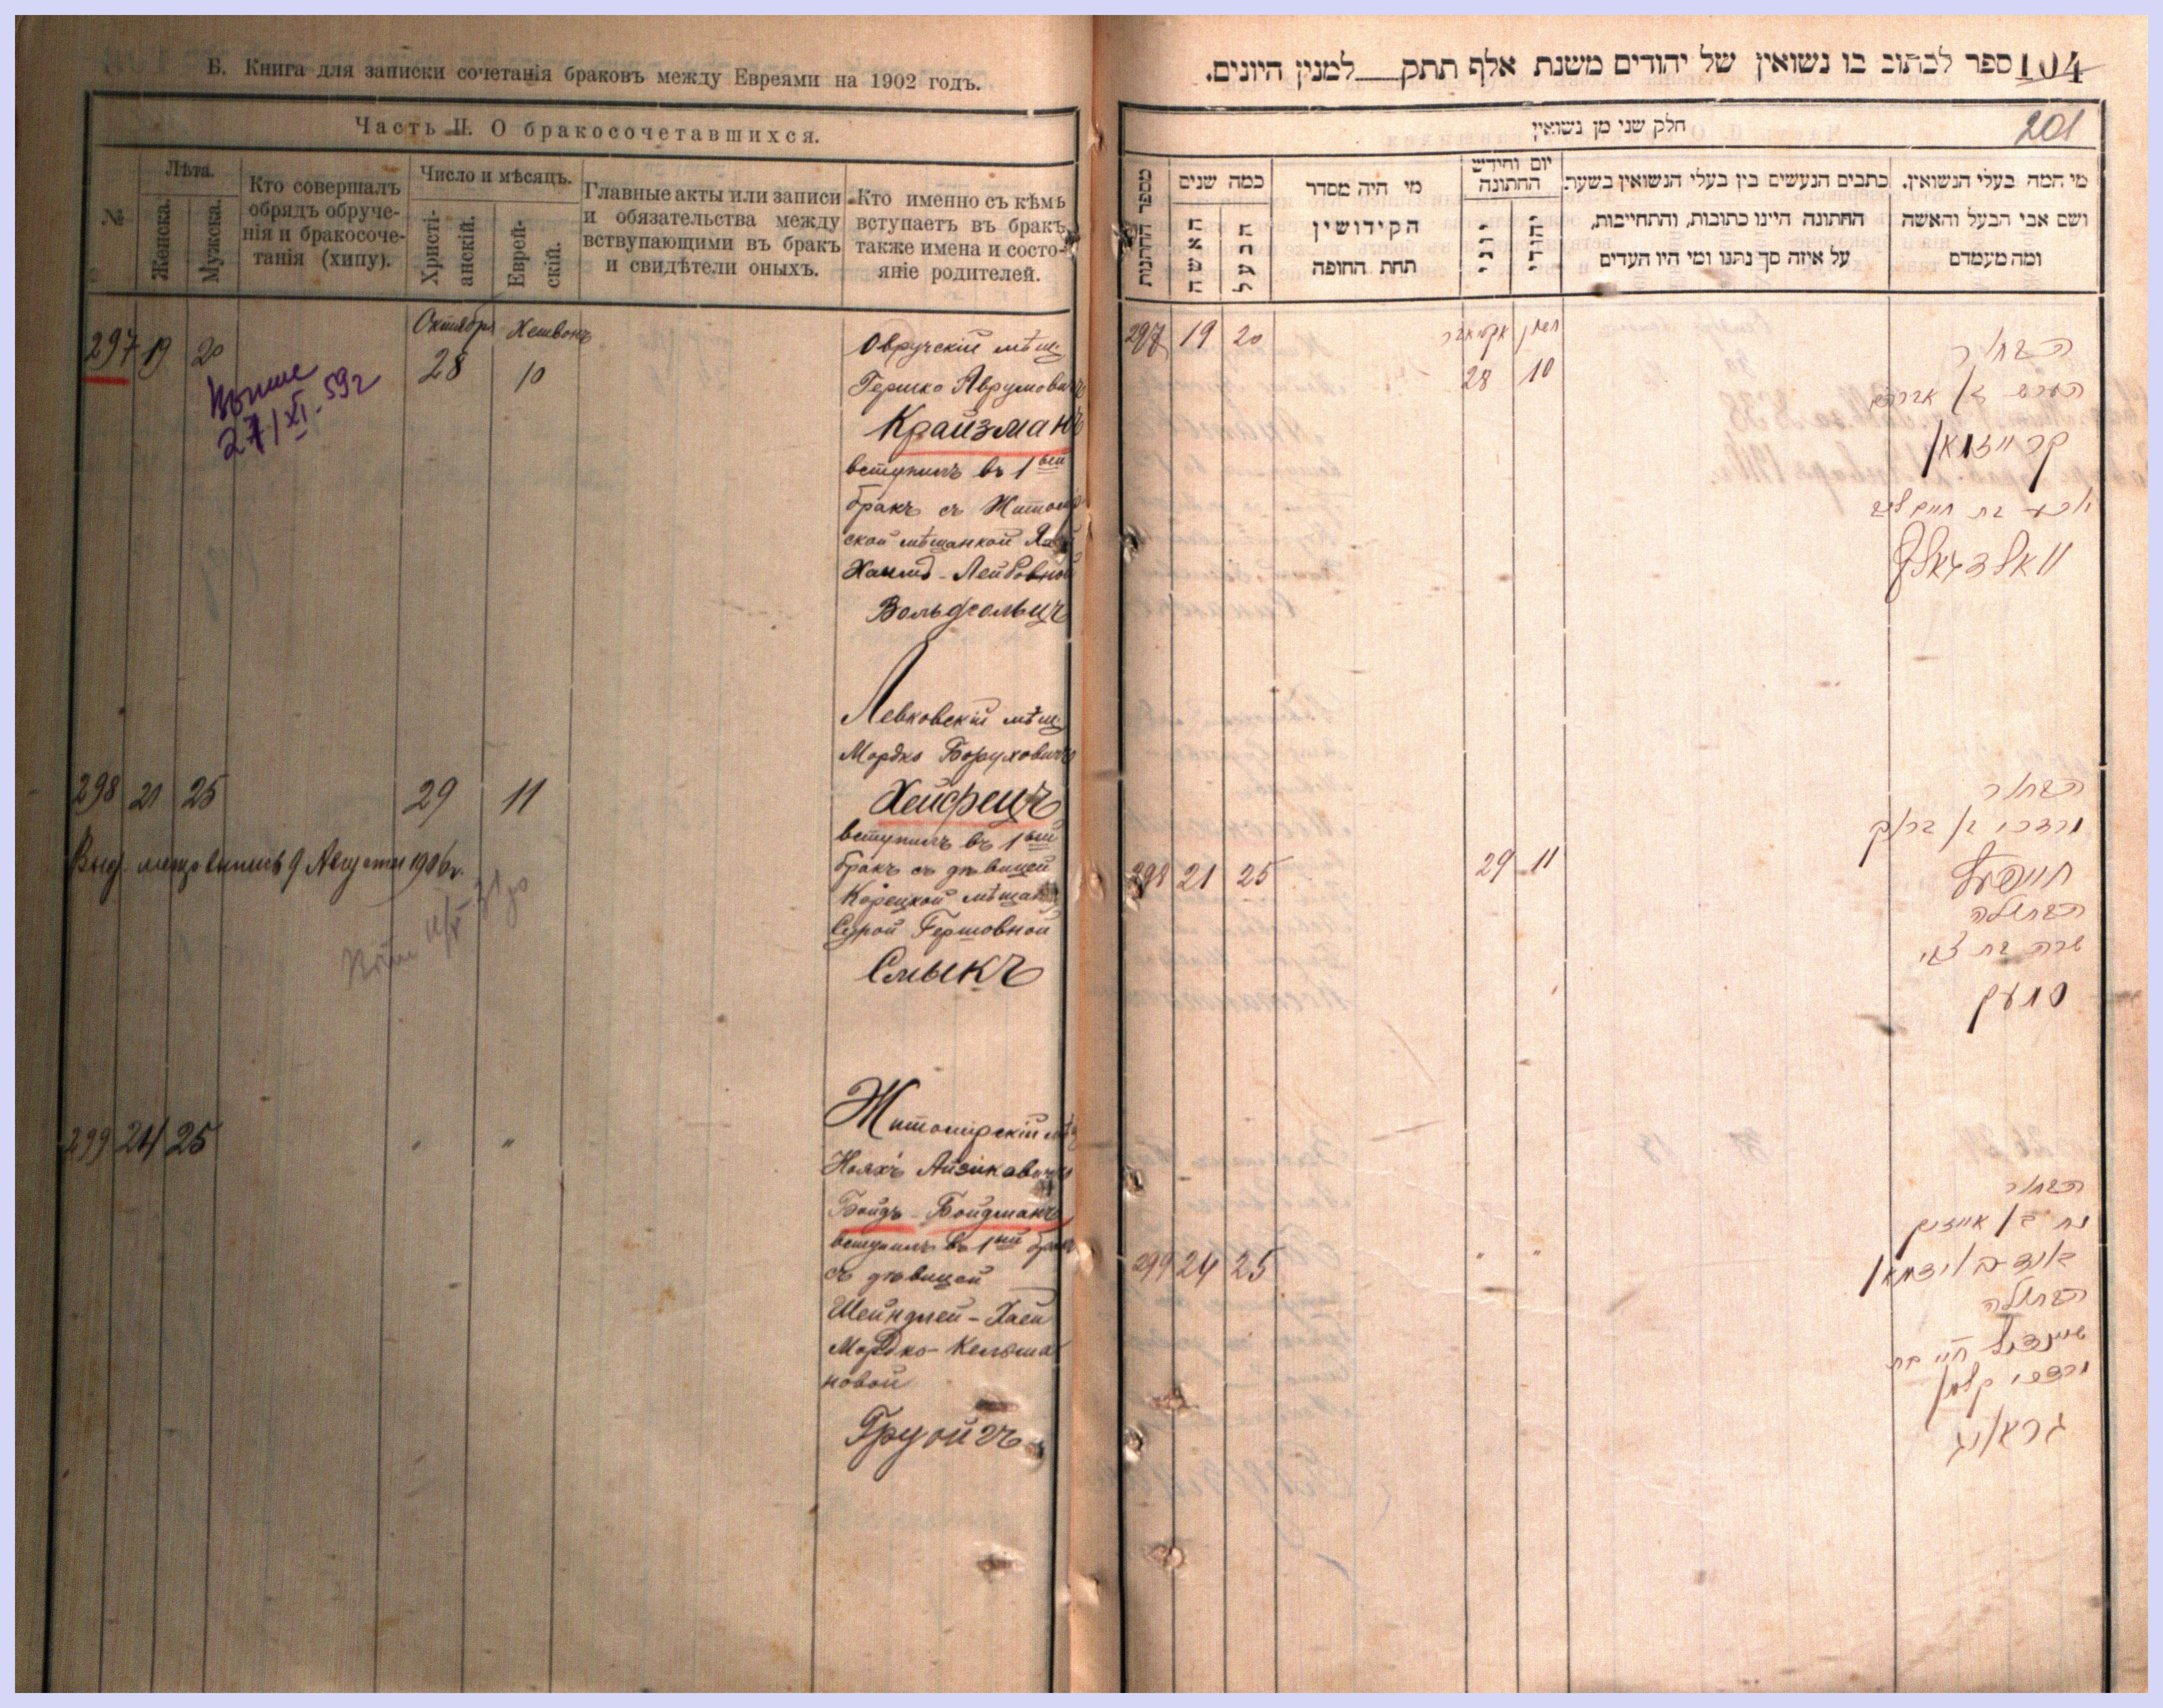 Б. Книга для записки сочетанія браковъ между Евреями на 1902 годъ.
Часть II. О бракосочетавшихся.
№
Лѣта.
Женска.
Мужска.
Кто совершалъ
обрядъ обруче-
нія и бракосоче-
танія (хипу).
Число и мѣсяцъ.
Христі-
анскій.
Еврей-
скій.
Главные акты или записи
и обязательства между
вствупающими въ бракъ
и свидѣтели оныхъ.
Кто именно съ кѣмъ
вступаетъ въ бракъ,
также имена и состо-
яніе родителей.
297 19 20
27/XI-59г
Октября Хешвонъ
28 10
Овручскій мѣщ.
Гершко Аврумовичъ
Крайзманъ
вступилъ въ 1ый
бракъ съ Житомир
ской мѣщанкой
Хаимъ-Лейбовной
Вольфсольцъ
298 21 25
29 11
9 Августа 1906г.
Левковскій мѣщ.
Мордко Боруховичъ
Хейфецъ
вступилъ въ 1ый
бракъ съ дѣвицей
Корецкой мѣщан
Сурой Гершовной
Смыкъ
299 24 25
" "
Житомірскій мѣщ
Нояхъ Айзиковичъ
Бойдъ-Бойдманъ
вступилъ въ 1ый бракъ
съ дѣвицей
Шейндлей-Хаей
Мордко-Кельма
новой
Груойгъ
104
ספר לכתוב בו נשואין של יהודים משנת אלף תתק למנין היונים.
201
חלק שני מן נשואין
מספר החתנות
כמה שנים
האשה
הבעל
מי היה מסדר
הקידושין
תחת החופה
יום וחידש
החתונה
יוני
יהודי
כתבים הנעשים בין בעלי הנשואין בשעת
החתונה היינו כתובות, והתחייבות,
על איזה סך נתנו ומי היו העדים
מי המה בעלי הנשואין.
ושם אבי הבעל והאשה
ומה מעמדם
297 19 20
אקטאבר חשון
28 10
הבחור
הערש בן אברהם
קרייזמאן
בת חיים ליב
וואלדזאלץ
298 21 25
29 11
הבחור
מרדכי בן ברוך
חייפעץ
הבתולה
שרה בת צבי
סמעק
299 24 25
" "
הבחור
נח בן אייזיק
הבתולה
שיינדיל חי׳ בת
מרדכי קלמן